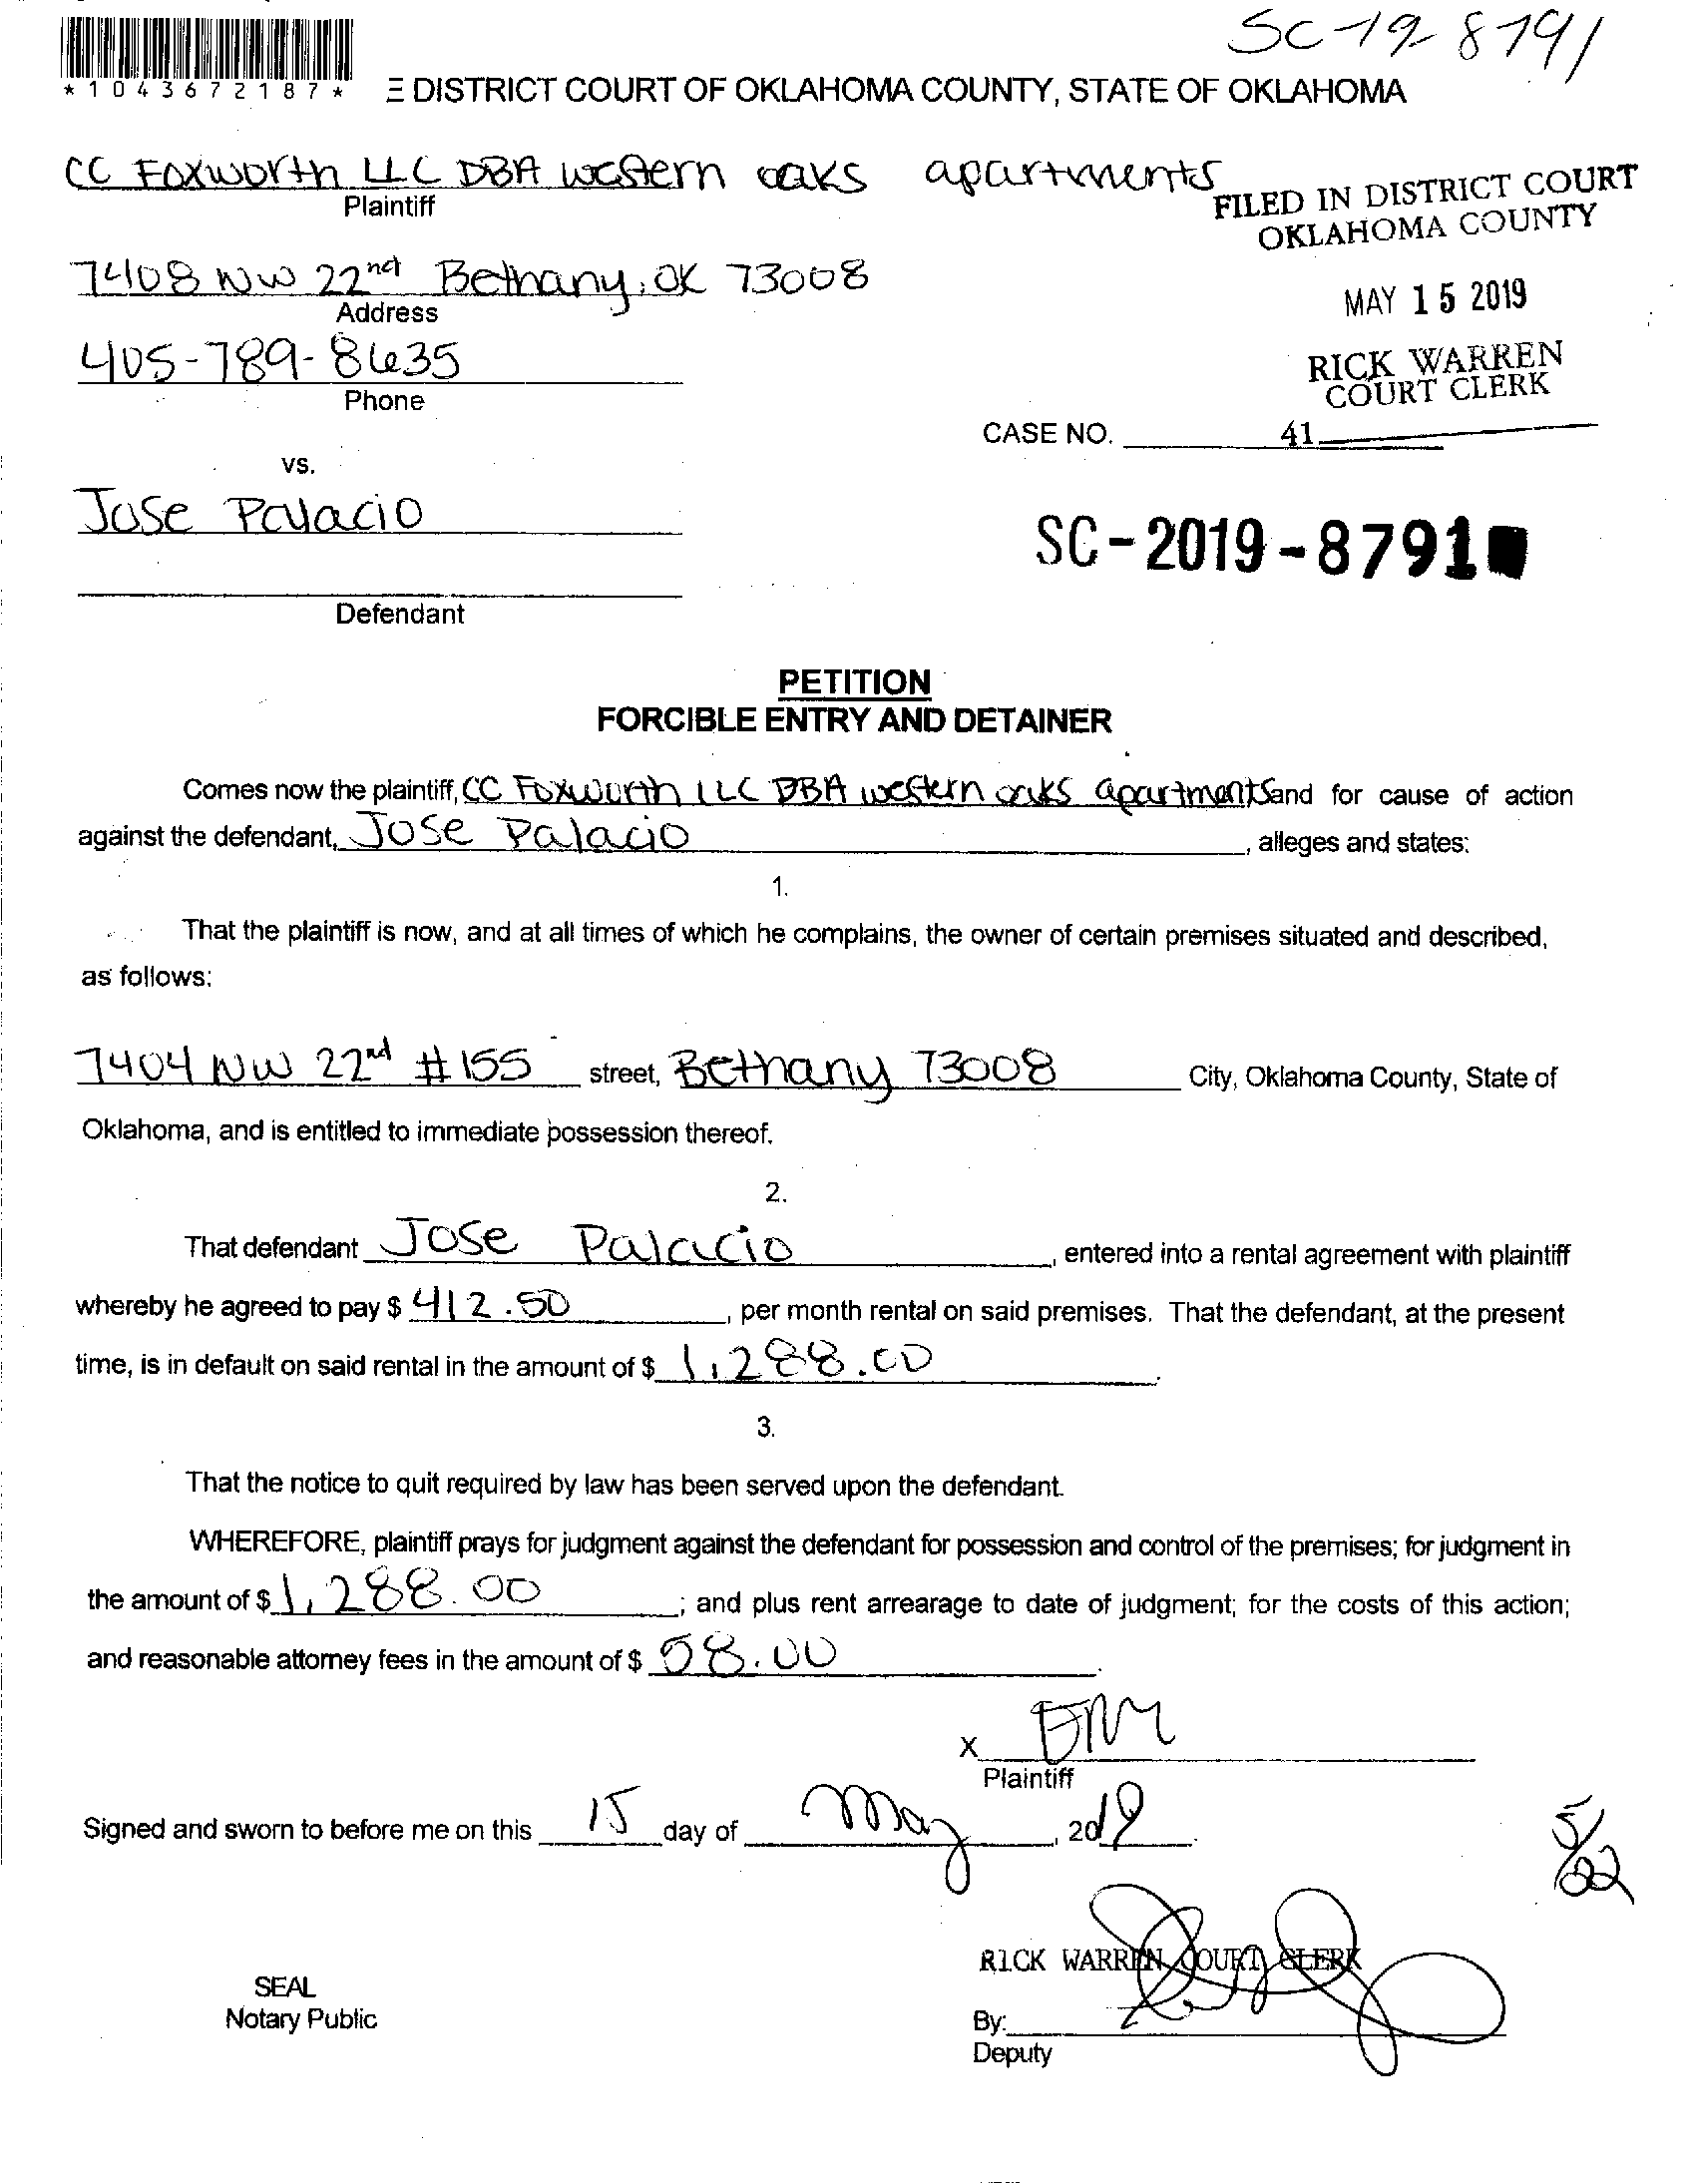 SC-19-8791
*1043672187*
E DISTRICT COURT OF OKLAHOMA COUNTY, STATE OF OKLAHOMA
CC Foxworth LLC DBA western oaks apartments
Plaintiff
FILED IN DISTRICT COURT
OKLAHOMA COUNTY
7408 NW 22nd Bethany, OK 73008
Address
MAY 15 2019
405-789-8635
Phone
RICK WARREN
COURT CLERK
CASE NO. 41
vs.
Jose Palacio
SC-2019-8791
Defendant
PETITION
FORCIBLE ENTRY AND DETAINER
Comes now the plaintiff, CC Foxworth LLC DBA western oaks apartments and for cause of action
against the defendant, Jose Palacio, alleges and states:
1.
That the plaintiff is now, and at all times of which he complains, the owner of certain premises situated and described,
as follows:
7404 NW 22nd #155 street, Bethany 73008 City, Oklahoma County, State of
Oklahoma, and is entitled to immediate possession thereof.
2.
That defendant Jose Palacio, entered into a rental agreement with plaintiff
whereby he agreed to pay $ 412.50, per month rental on said premises. That the defendant, at the present
time, is in default on said rental in the amount of $ 1,288.00.
3.
That the notice to quit required by law has been served upon the defendant.
WHEREFORE, plaintiff prays for judgment against the defendant for possession and control of the premises; for judgment in
the amount of $ 1,288.00; and plus rent arrearage to date of judgment; for the costs of this action;
and reasonable attorney fees in the amount of $ 58.00.
X
Plaintiff
Signed and sworn to before me on this 15 day of May, 2019.
5/22
RICK WARREN COURT CLERK
SEAL
Notary Public
By:
Deputy